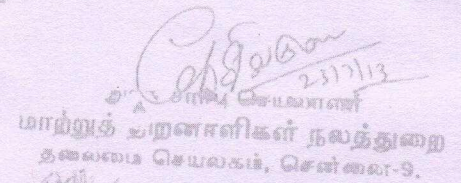 23/7/13
சார்பு செயலாளர்
மாற்றுத் திறனாளிகள் நலத்துறை
தலைமை செயலகம், சென்னை-9.